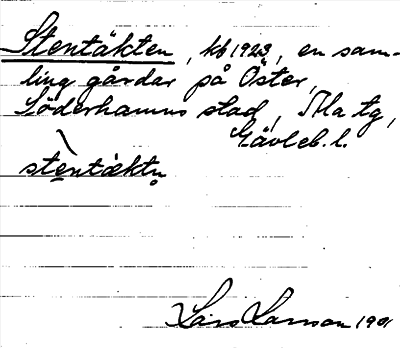 Stentäkten, kb 1923, en sam-
ling gårdar på Öster,
Söderhamns stad, Ala tg,
Gävleb. l.
stentäktn
Lars Larsson 1901